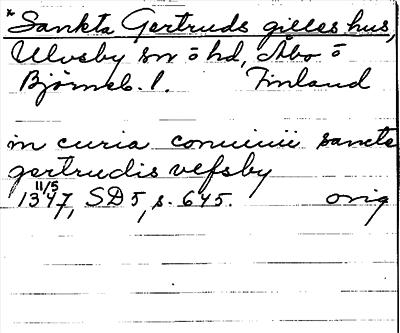 * Sankta Gertruds gilles hus,
Ulvsby sn o hd, Åbo o
Björneb. l. Finland
in curia conuiuii sancte
gertrudis vefsby
11/5
1347, SD 5, s. 645. orig